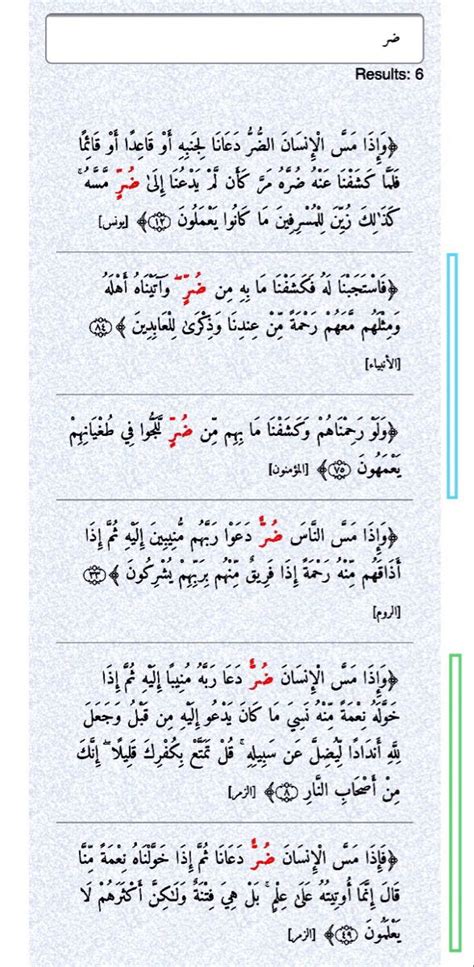 ضر
Results: 6
﴿وَإِذَا مَسَّ الْإِنسَانَ الضُّرُّ دَعَانَا لِجَنبِهِ أَوْ قَاعِدًا أَوْ قَائِمًا
فَلَمَّا كَشَفْنَا عَنْهُ ضُرَّهُ مَرَّ كَأَن لَّمْ يَدْعُنَا إِلَىٰ ضُرٍّ مَّسَّهُ ۚ
كَذَٰلِكَ زُيِّنَ لِلْمُسْرِفِينَ مَا كَانُوا يَعْمَلُونَ ﴿١٢﴾﴾ [يونس]
﴿فَاسْتَجَبْنَا لَهُ فَكَشَفْنَا مَا بِهِ مِن ضُرٍّ ۖ وَآتَيْنَاهُ أَهْلَهُ
وَمِثْلَهُم مَّعَهُمْ رَحْمَةً مِّنْ عِندِنَا وَذِكْرَىٰ لِلْعَابِدِينَ ﴿٨٤﴾﴾
[الأنبياء]
﴿وَلَوْ رَحِمْنَاهُمْ وَكَشَفْنَا مَا بِهِم مِّن ضُرٍّ لَّلَجُّوا فِي طُغْيَانِهِمْ
يَعْمَهُونَ ﴿٧٥﴾﴾ [المؤمنون]
﴿وَإِذَا مَسَّ النَّاسَ ضُرٌّ دَعَوْا رَبَّهُم مُّنِيبِينَ إِلَيْهِ ثُمَّ إِذَا
أَذَاقَهُم مِّنْهُ رَحْمَةً إِذَا فَرِيقٌ مِّنْهُم بِرَبِّهِمْ يُشْرِكُونَ ﴿٣٣﴾﴾
[الروم]
﴿وَإِذَا مَسَّ الْإِنسَانَ ضُرٌّ دَعَا رَبَّهُ مُنِيبًا إِلَيْهِ ثُمَّ إِذَا
خَوَّلَهُ نِعْمَةً مِّنْهُ نَسِيَ مَا كَانَ يَدْعُو إِلَيْهِ مِن قَبْلُ وَجَعَلَ
لِلَّهِ أَندَادًا لِّيُضِلَّ عَن سَبِيلِهِ ۚ قُلْ تَمَتَّعْ بِكُفْرِكَ قَلِيلًا ۖ إِنَّكَ
مِنْ أَصْحَابِ النَّارِ ﴿٨﴾﴾ [الزمر]
﴿فَإِذَا مَسَّ الْإِنسَانَ ضُرٌّ دَعَانَا ثُمَّ إِذَا خَوَّلْنَاهُ نِعْمَةً مِّنَّا
قَالَ إِنَّمَا أُوتِيتُهُ عَلَىٰ عِلْمٍ ۚ بَلْ هِيَ فِتْنَةٌ وَلَٰكِنَّ أَكْثَرَهُمْ لَا
يَعْلَمُونَ ﴿٤٩﴾﴾ [الزمر]